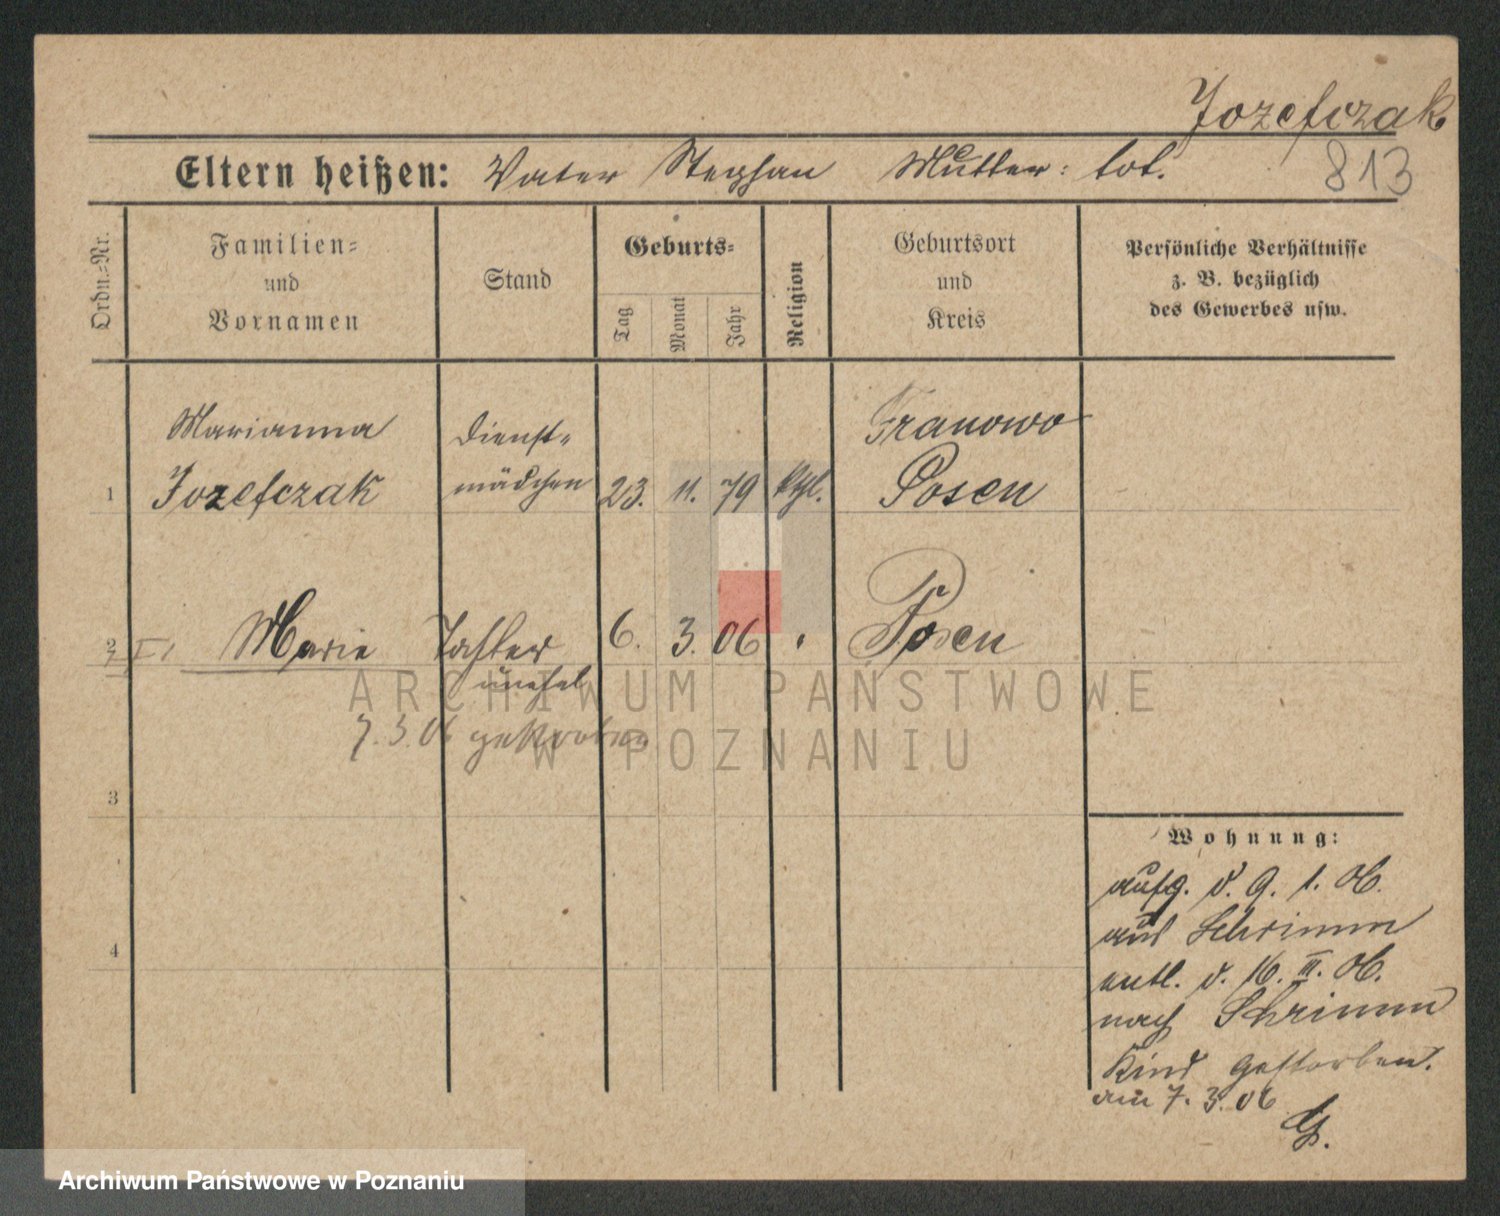 Jozefczak
813
Eltern heißen: Vater Stephan Mutter: tot.
Ordn.-Nr.
Familien-
und
Vornamen
Stand
Geburts-
Tag
Monat
Jahr
Religion
Geburtsort
und
Kreis
Persönliche Verhältnisse
z. B. bezüglich
des Gewerbes usw.
Marianna Dienst- Granowo
1 Jozefczak mädchen 23. 11. 79 kthl. Posen
2 Marie Tochter 6. 3. 06 Posen
unehel
7.3.06 gestorben
ARCHIWUM PAŃSTWOWE
W POZNANIU
3
Wohnung:
aufg. d. 9. 1. 06.
aus Schrimm
4
entl. d. 16. III. 06.
nach Schrimm
Kind gestorben.
am 7. 3. 06
Archiwum Państwowe w Poznaniu